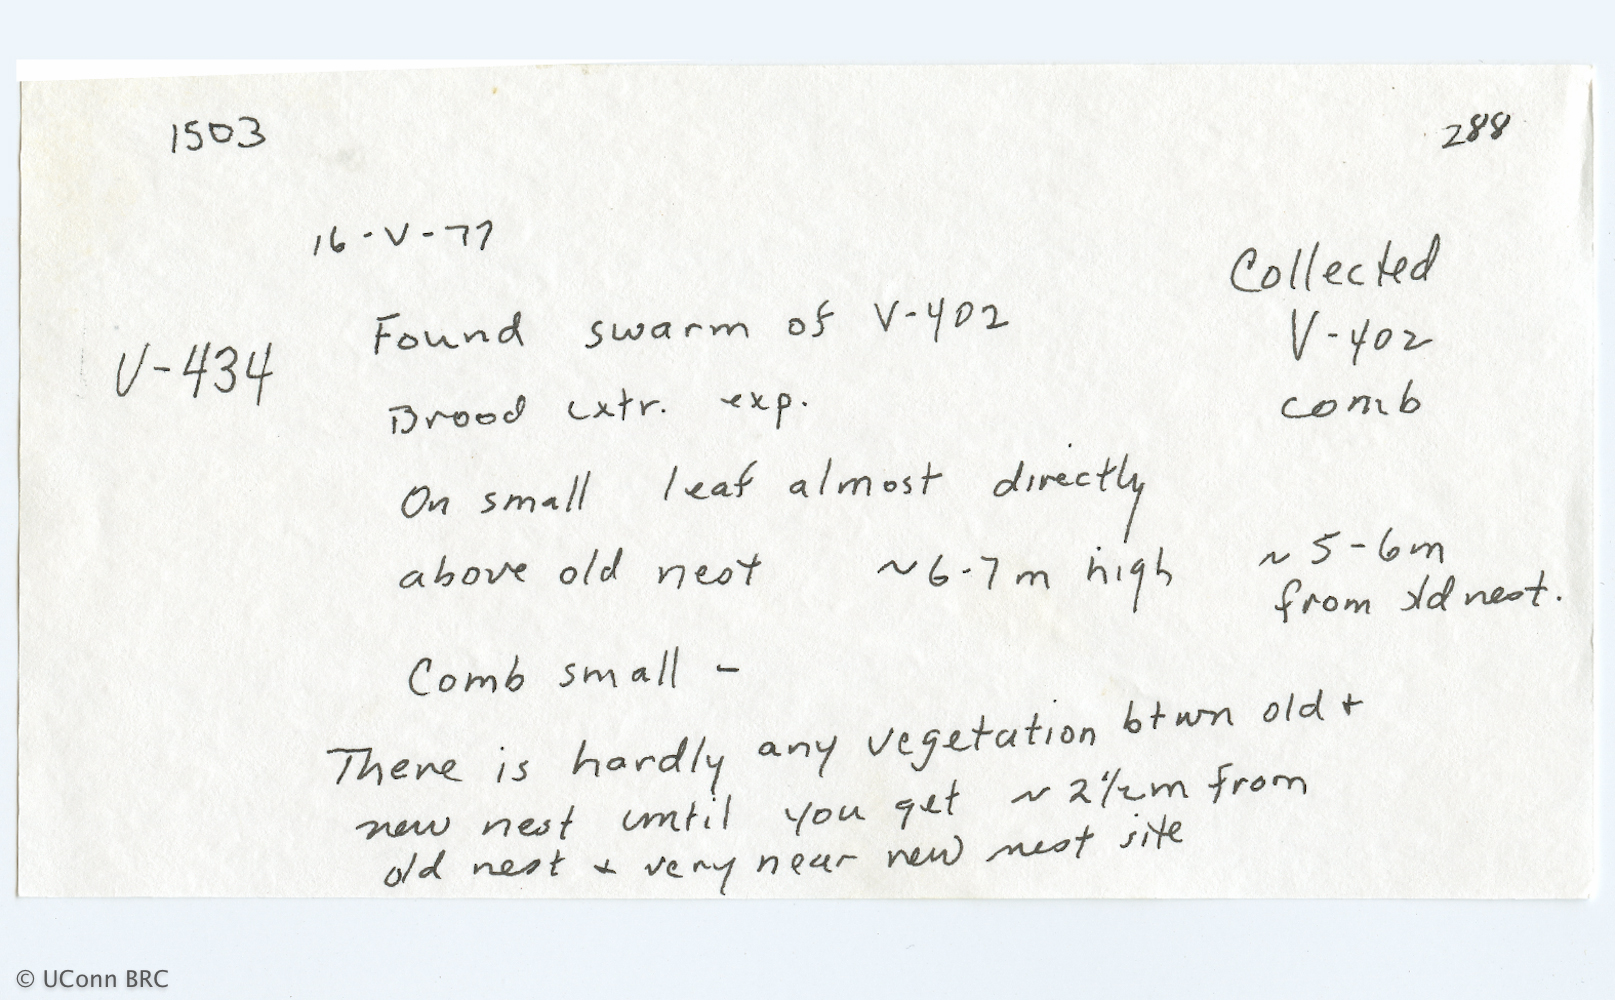 1503
288
16-V-77
Collected
V-402
comb
V-434
Found swarm of V-402
Brood extr. exp.
On small leaf almost directly
above old nest ~6-7m high
~5-6m
from old nest.
Comb small -
There is hardly any vegetation btwn old +
new nest until you get ~ 2½m from
old nest + very near new nest site
© UConn BRC